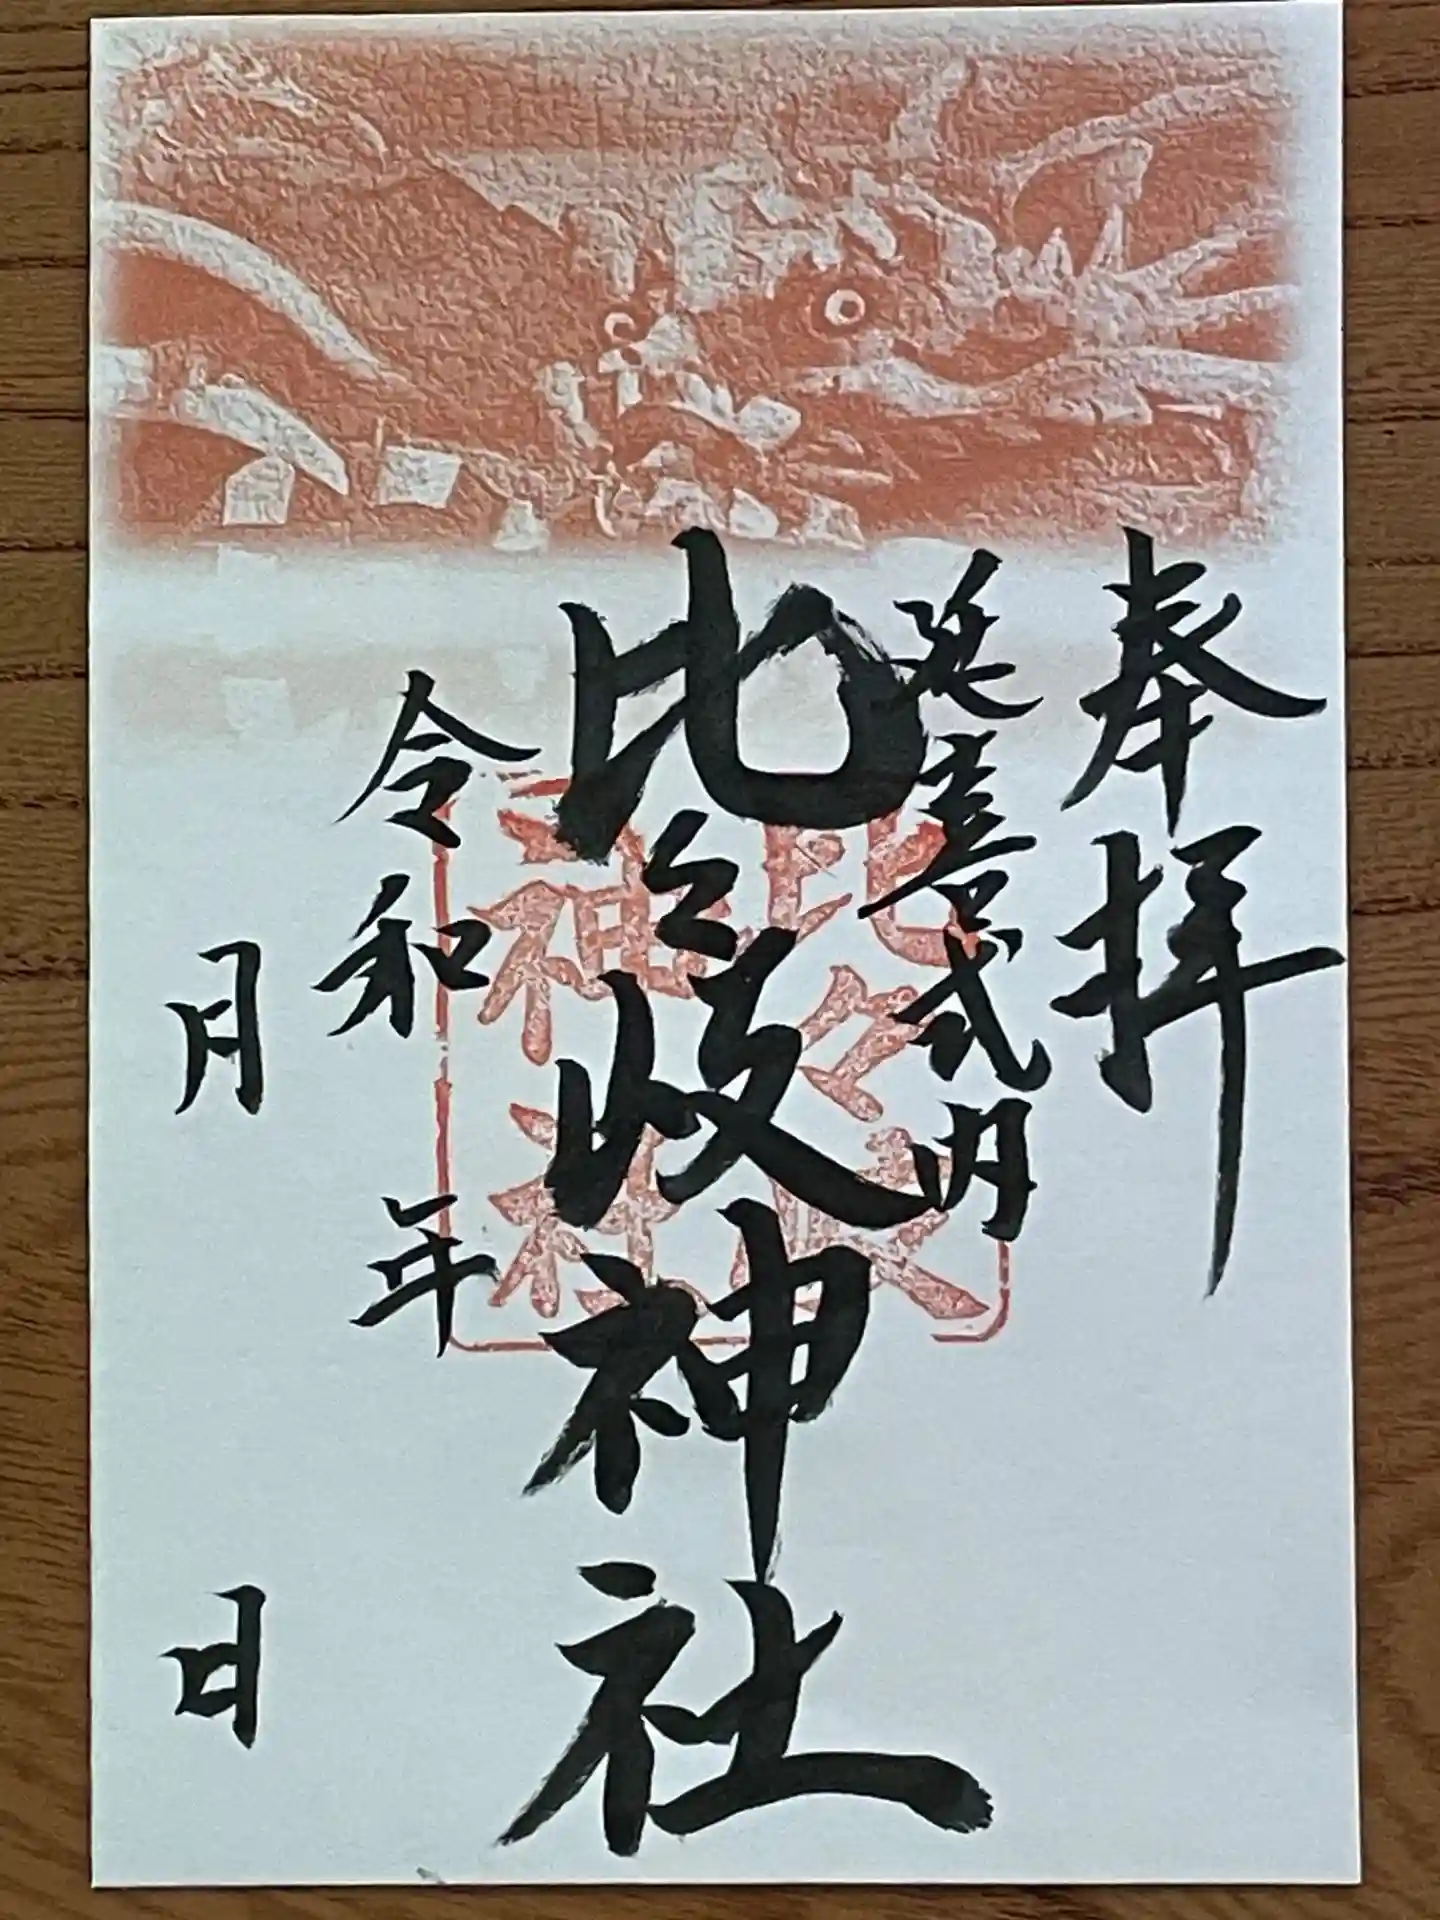 奉拝
延喜式内
比々岐神社
比々岐
神社
令和 年
月 日